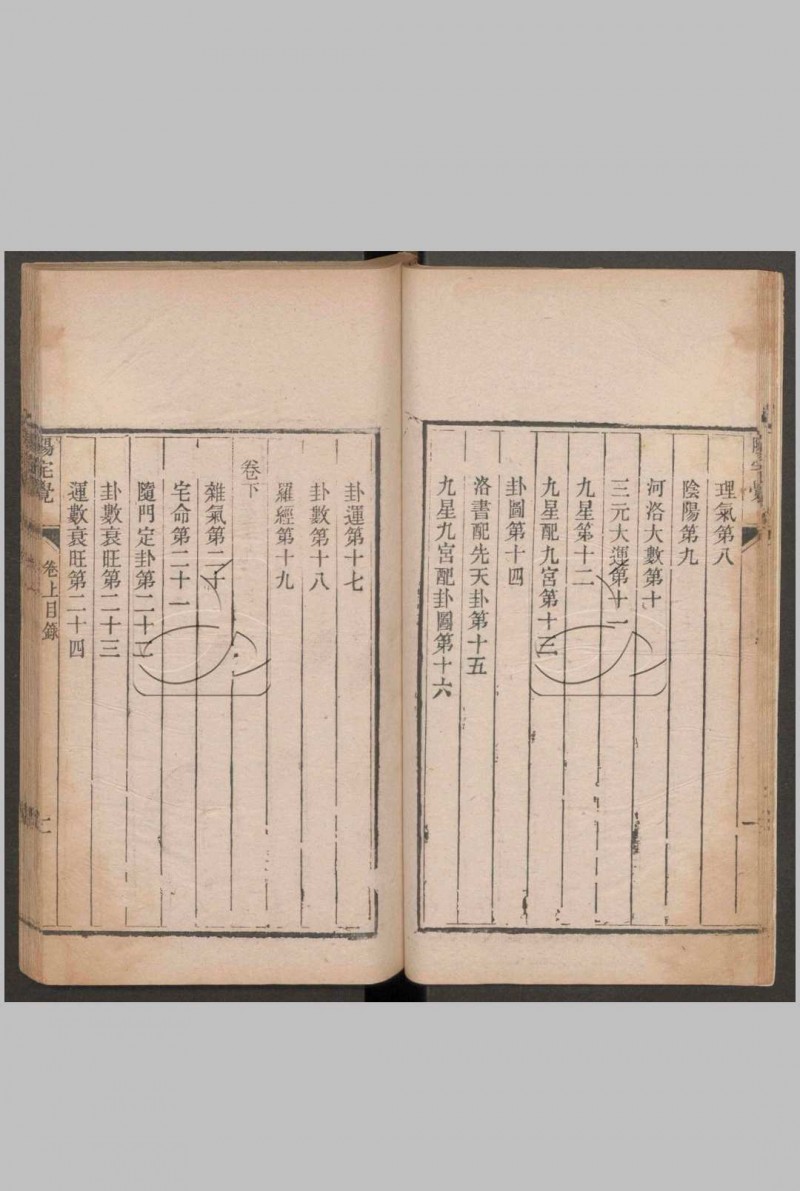 理氣第八
陰陽第九
河洛大數第十
三元大運第十一
九星第十二
九星配九宮第十三
卦圖第十四
洛書配先天卦第十五
九星九宮配卦圖第十六
一
卦運第十七
卦數第十八
羅經第十九
卷下
雜氣第二十
宅命第二十一
隨門定卦第二十二
卦數衰旺第二十三
運數衰旺第二十四
陽宅覺
卷上目錄
二